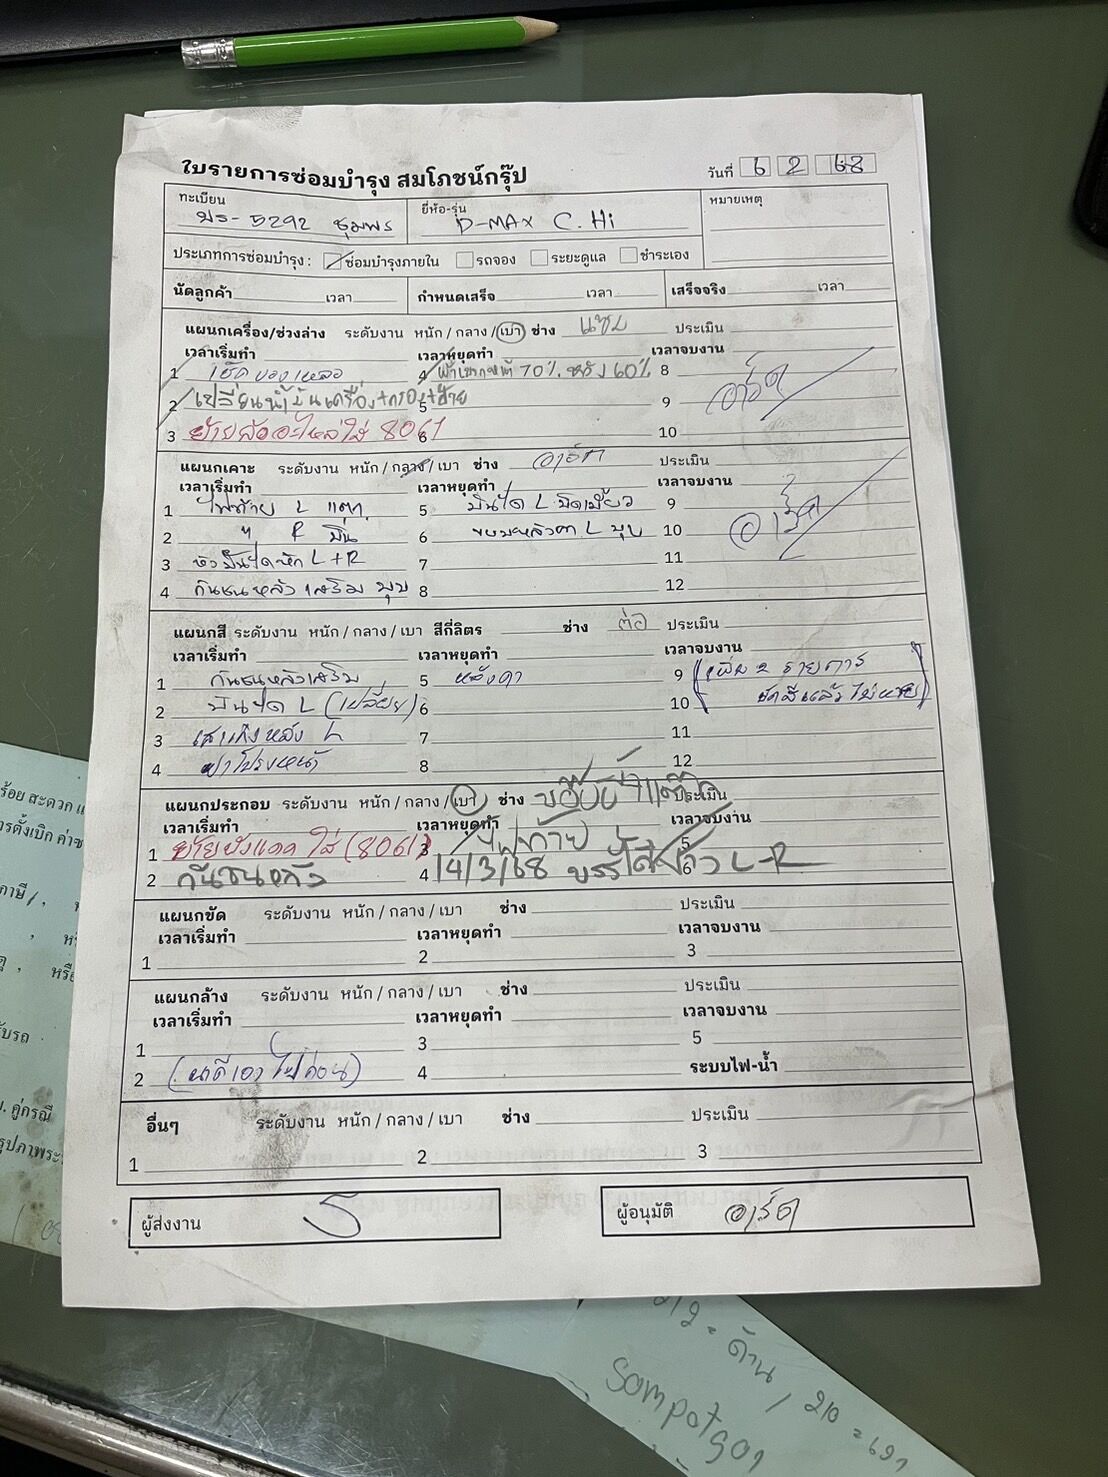 ใบรายการซ่อมบำรุง สมโภชน์กรุ๊ป
วันที่ 6 2 68
ทะเบียน ยี่ห้อ-รุ่น หมายเหตุ
5292 ชุมพร D-MAX C. Hi
ประเภทการซ่อมบำรุง : ซ่อมบำรุงภายใน รถจอง ระยะดูแล ชำระเอง
นัดลูกค้า เวลา กำหนดเสร็จ เวลา เสร็จจริง เวลา
แผนกเครื่อง/ช่วงล่าง ระดับงาน หนัก / กลาง / เบา ช่าง ประเมิน
เวลาเริ่มทำ เวลาหยุดทำ เวลาจบงาน
1 เช็คของเหลว 4 ผ้าเบรกหน้า 70% หลัง 60% 8
2 เปลี่ยนน้ำมันเครื่อง+กรอง 5 9
3 ย้ายอะไหล่ใส่ 8061 6 10
แผนกเคาะ ระดับงาน หนัก / กลาง / เบา ช่าง อาร์ท ประเมิน
เวลาเริ่มทำ เวลาหยุดทำ เวลาจบงาน
1 ไฟท้าย L แตก 5 บันได L บิดเบี้ยว 9
2 " R บิ่น 6 ขอบหลังคา L บุบ 10
3 หัวบันไดหัก L+R 7 11
4 กันชนหลังเสริม บุบ 8 12
แผนกสี ระดับงาน หนัก / กลาง / เบา สีกี่ลิตร ช่าง ต่อ ประเมิน
เวลาเริ่มทำ เวลาหยุดทำ เวลาจบงาน
1 กันชนหลังเสริม 5 หลังคา 9 (เพิ่ม 2 รายการ
2 บันได L (เปลี่ยน) 6 10 ขัดสีแล้วไม่หาย)
3 เสาเก๋งหลัง L 7 11
4 ฝาโปรงหน้า 8 12
แผนกประกอบ ระดับงาน หนัก / กลาง / เบา ช่าง ประเมิน
เวลาเริ่มทำ เวลาหยุดทำ เวลาจบงาน
1 ย้าย ใส่ (8061) 3 ไฟท้าย 5
2 กันชนหลัง 4 14/3/68 L-R 6
แผนกขัด ระดับงาน หนัก / กลาง / เบา ช่าง ประเมิน
เวลาเริ่มทำ เวลาหยุดทำ เวลาจบงาน
1 2 3
แผนกล้าง ระดับงาน หนัก / กลาง / เบา ช่าง ประเมิน
เวลาเริ่มทำ เวลาหยุดทำ เวลาจบงาน
1 3 5
2 (นาดีเอาไปก่อน) 4 ระบบไฟ-น้ำ
อื่นๆ ระดับงาน หนัก / กลาง / เบา ช่าง ประเมิน
1 2 3
ผู้ส่งงาน ผู้อนุมัติ อาร์ต
ร้อย สะดวก
ารตั้งเบิก
ภาษี/,
หรือ
ับรถ
คู่กรณี
รูปภาพ
ด้าน / 210